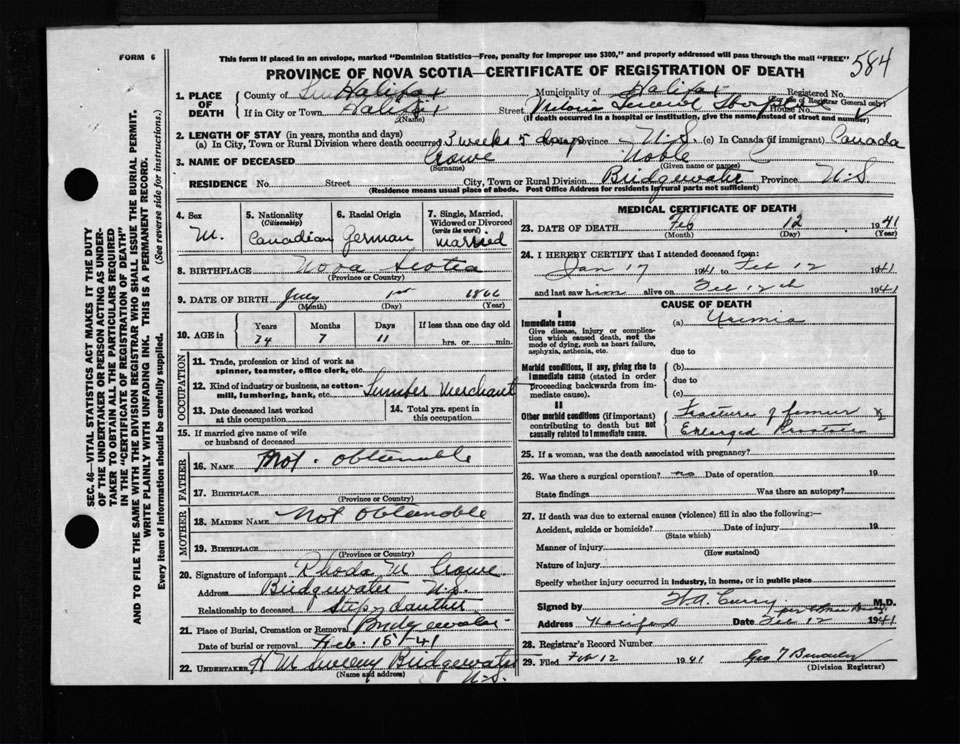 FORM 6
This form if placed in an envelope, marked "Dominion Statistics—Free, penalty for improper use $300," and properly addressed will pass through the mail "FREE"
584
PROVINCE OF NOVA SCOTIA—CERTIFICATE OF REGISTRATION OF DEATH
1. PLACE OF DEATH
County of Halifax Municipality of Halifax Registered No.
(For use of Registrar General only)
If in City or Town Halifax (Name) Street Victoria General Hospital House No.
(If death occurred in a hospital or institution, give the name instead of street and number)
2. LENGTH OF STAY (in years, months and days)
(a) In City, Town or Rural Division where death occurred 3 weeks 5 days Province N.S. (c) In Canada (if immigrant) Canada
3. NAME OF DECEASED Crowe Noble
(Surname) (Given name or names)
RESIDENCE No. Street City, Town or Rural Division Bridgewater Province N.S.
(Residence means usual place of abode. Post Office Address for residents in rural parts not sufficient)
4. Sex M.
5. Nationality (Citizenship) Canadian
6. Racial Origin German
7. Single, Married, Widowed or Divorced (write the word) married
8. BIRTHPLACE Nova Scotia
(Province or Country)
9. DATE OF BIRTH July 1st 1866
(Month) (Day) (Year)
10. AGE in Years Months Days If less than one day old
74 7 11 hrs. or min.
OCCUPATION
11. Trade, profession or kind of work as spinner, teamster, office clerk, etc.
12. Kind of industry or business, as cotton-mill, lumbering, bank, etc. Lumber Merchant
13. Date deceased last worked at this occupation
14. Total yrs. spent in this occupation
15. If married give name of wife or husband of deceased
FATHER
16. NAME Not obtainable
17. BIRTHPLACE
(Province or Country)
MOTHER
18. MAIDEN NAME Not Obtainable
19. BIRTHPLACE
(Province or Country)
20. Signature of informant Rhoda M Crowe
Address Bridgewater N.S.
Relationship to deceased Step daughter
21. Place of Burial, Cremation or Removal Bridgewater
Date of burial or removal Feb. 15-41
22. UNDERTAKER H M Sweeny Bridgewater N.S.
(Name and address)
MEDICAL CERTIFICATE OF DEATH
23. DATE OF DEATH Feb 12 1941
(Month) (Day) (Year)
24. I HEREBY CERTIFY that I attended deceased from:
Jan 17 1941 to Feb 12 1941
and last saw him alive on Feb 12th 1941
CAUSE OF DEATH
I
Immediate cause
Give disease, injury or complication which caused death, not the mode of dying, such as heart failure, asphyxia, asthenia, etc.
(a) Uremia
due to
Morbid conditions, if any, giving rise to immediate cause (stated in order proceeding backwards from immediate cause).
(b)
due to
(c)
II
Other morbid conditions (if important) contributing to death but not causally related to immediate cause.
Fracture of femur
Enlarged Prostate
25. If a woman, was the death associated with pregnancy?
26. Was there a surgical operation? no Date of operation 19
State findings Was there an autopsy?
27. If death was due to external causes (violence) fill in also the following:—
Accident, suicide or homicide? Date of injury 19
(State which)
Manner of injury
(How sustained)
Nature of injury
Specify whether injury occurred in industry, in home, or in public place
Signed by W.A. Curry M.D.
Address Halifax Date Feb 12 1941
28. Registrar's Record Number
29. Filed Feb 12 1941
(Division Registrar)
SEC. 46—VITAL STATISTICS ACT MAKES IT THE DUTY
OF THE UNDERTAKER OR PERSON ACTING AS UNDER-
TAKER TO OBTAIN ALL THE PARTICULARS REQUIRED
IN THE "CERTIFICATE OF REGISTRATION OF DEATH"
AND TO FILE THE SAME WITH THE DIVISION REGISTRAR WHO SHALL ISSUE THE BURIAL PERMIT.
WRITE PLAINLY WITH UNFADING INK. THIS IS A PERMANENT RECORD.
Every item of information should be carefully supplied. (See reverse side for instructions.)